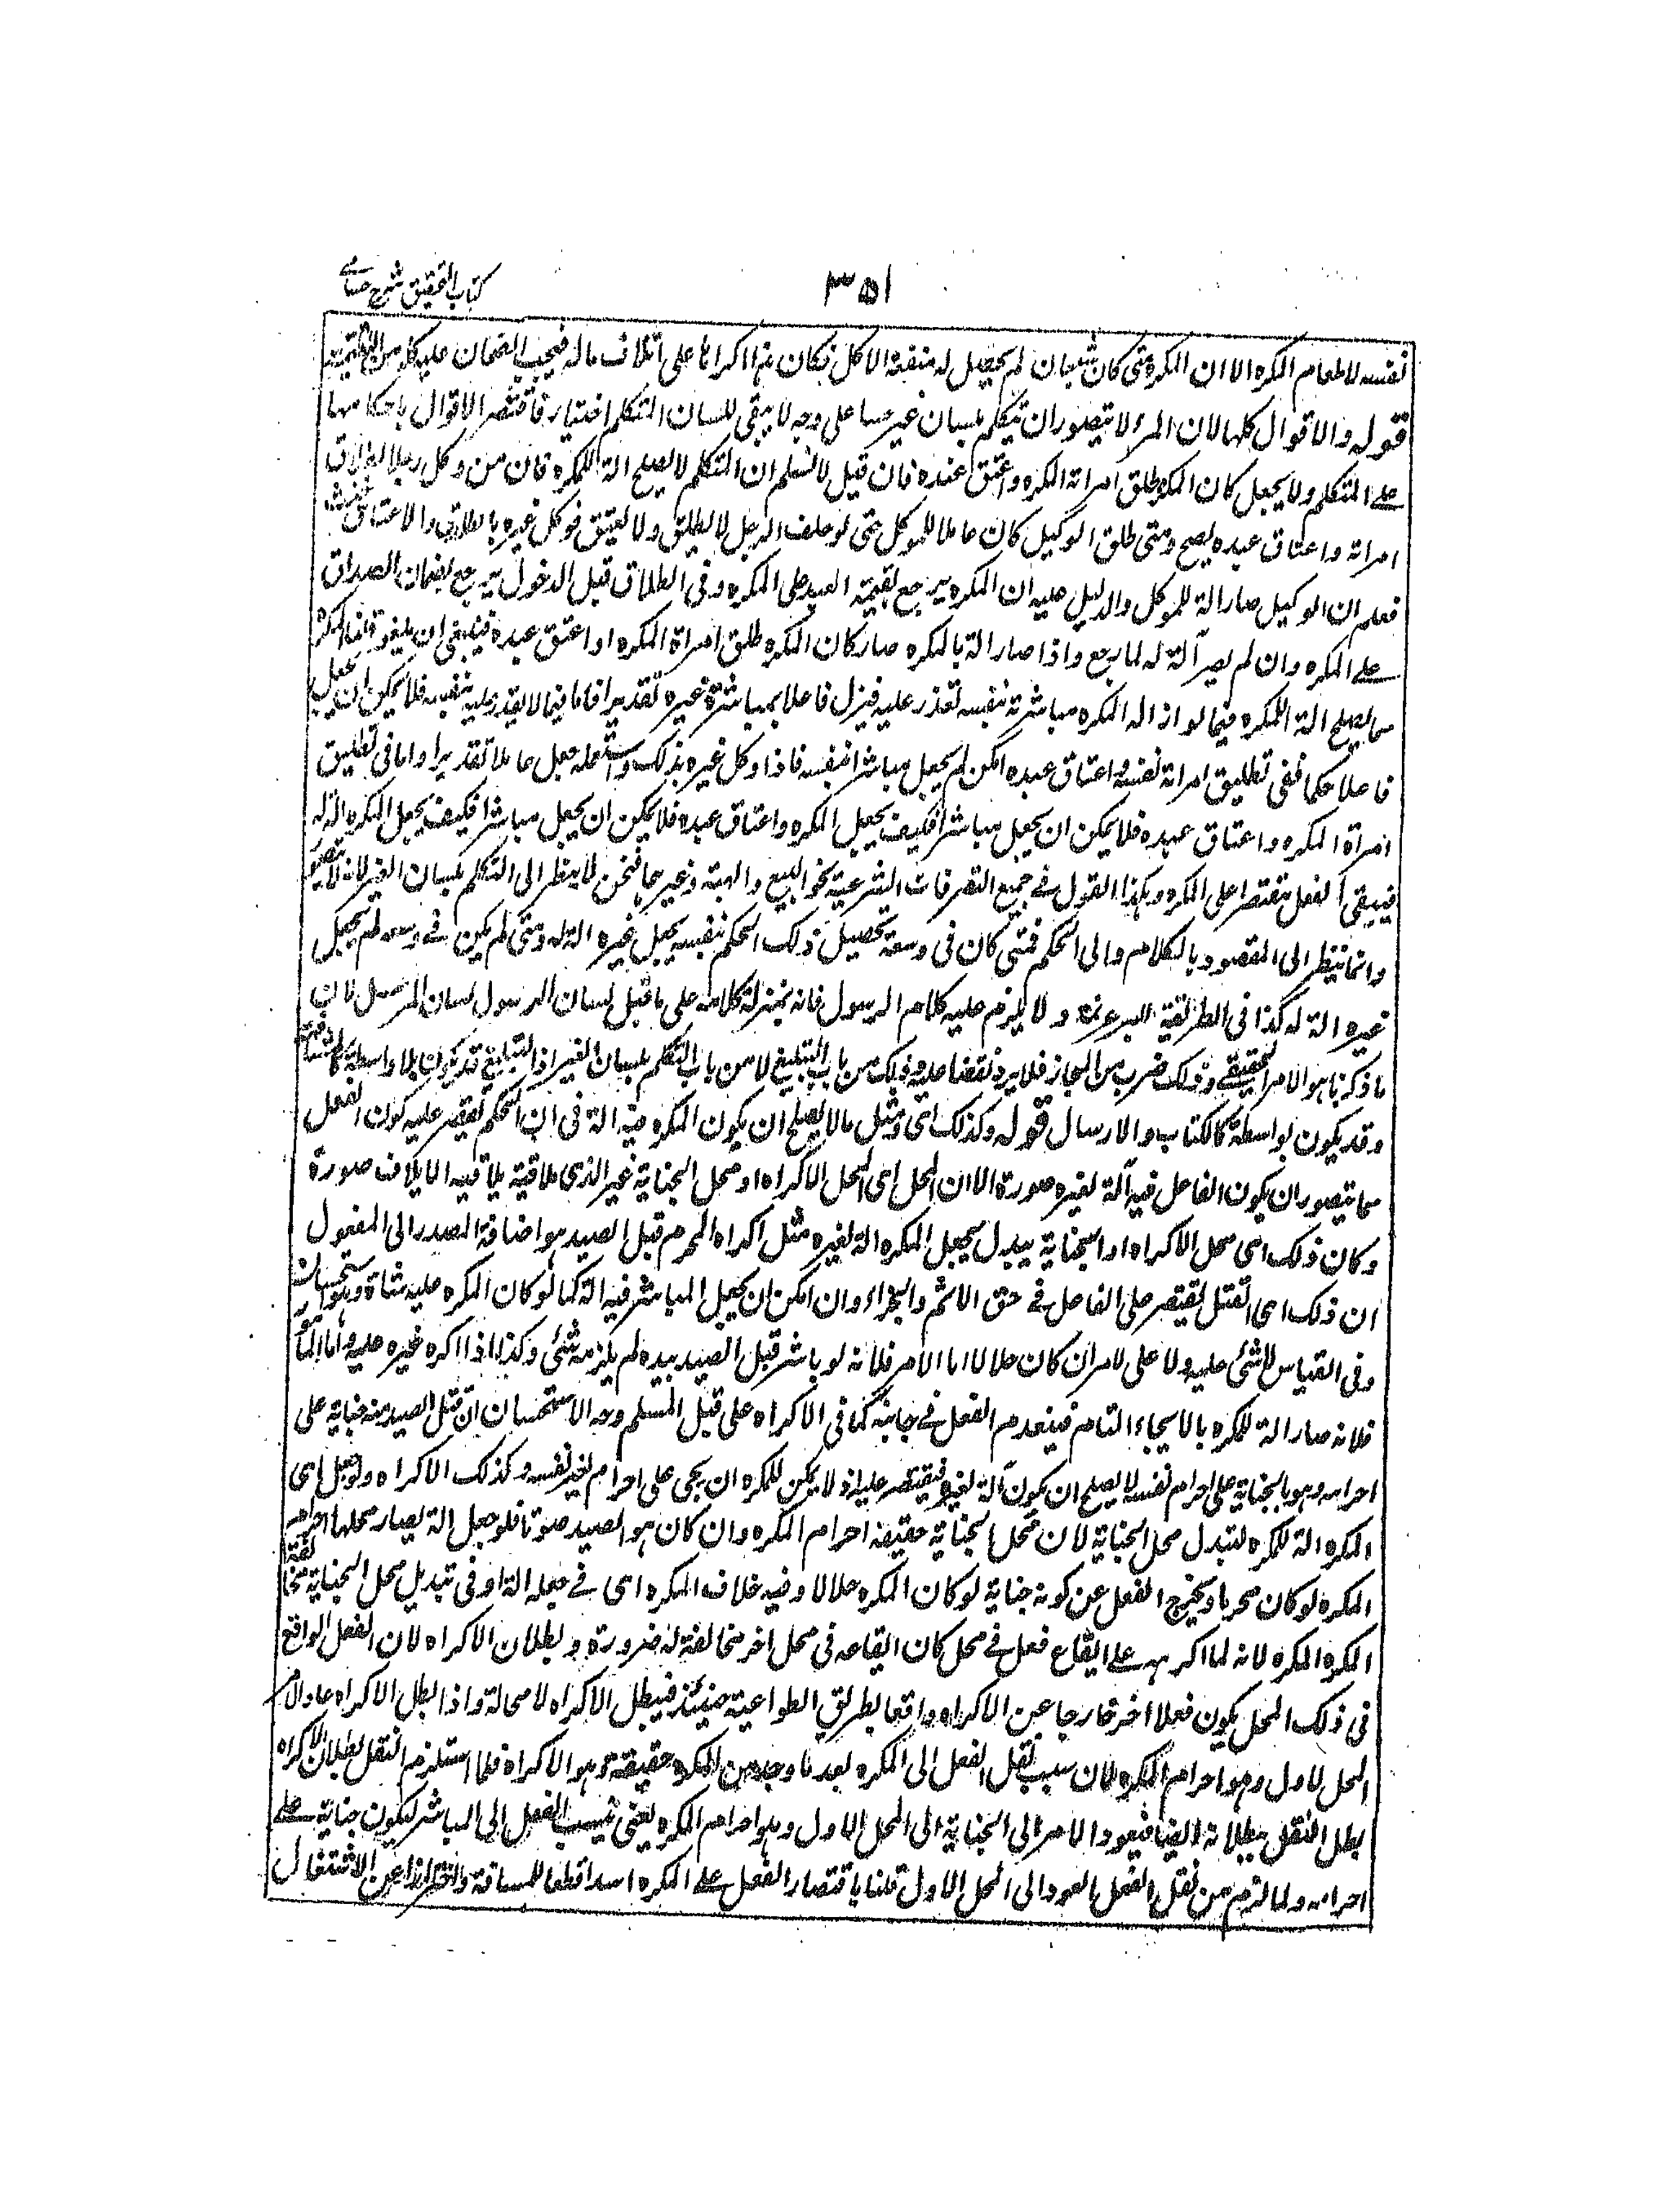 كتاب التحقيق شرح حسامى
٣٥١
نفسه لاطعام المكره الا ان المكره متى كان شبعان لم يحصل له منفعة الاكل فكان هذا اكراها على اتلاف ماله فيجب الضمان عليه
قوله والاقوال كلها لان المرء لا يتصور ان يتكلم بلسان غيره على وجه لا يبقى للسان المتكلم اختيار فاقتصر الاقوال باحكامها
على المتكلم ولا يجعل كان المكره طلق امراة المكره واعتق عبده فان قيل لا نسلم ان المتكلم لا يصلح الة للمكره فان من وكل رجلا بطلاق
امراته واعتاق عبده يصح ومتى طلق الوكيل كان عاملا للموكل حتى لو حلف الرجل لا يطلق ولا يعتق فوكل غيره بالطلاق والاعتاق
فعلم ان الوكيل صار الة للموكل والدليل عليه ان المكره يرجع بقيمة العبد على المكره وفى الطلاق قبل الدخول يرجع بضمان الصداق
على المكره وان لم يصر آلة له لما رجع واذا صار الة بالمكره صار كان المكره طلق امراة المكره او اعتق عبده فينبغى ان يلغو قلنا
مما يصلح الة للمكره فيما لو اراد المكره مباشرته بنفسه تعذر عليه فينزل فاعلا بمباشرة غيره تقديرا فاما فيما لا يقدر عليه بنفسه فلا يمكن ان يجعل
فاعلا حكما ففى تطليق امراة نفسه واعتاق عبده امكن لم يجعل مباشرا بنفسه فاذا وكل غيره بذلك واستعمله جعل عاملا تقديرا واما فى تطليق
امراة المكره واعتاق عبده فلا يمكن ان يجعل مباشرا فكيف يجعل المكره واعتاق عبده فلا يمكن ان يجعل مباشرا فكيف يجعل المكره الة له
فيبقى الفعل مقتصرا على المكره وهكذا القول فى جميع التصرفات الشرعية نحو البيع والهبة وغيرهما فنحن لا ننظر الى التكلم بلسان الغير لانه لا يتصور
وانما ننظر الى المقصود بالكلام والى الحكم فمتى كان فى وسعه تحصيل ذلك الحكم بنفسه يجعل غيره الة له ومتى لم يكن فى وسعه لم يجعل
غيره الة له كذا فى الطريقة البرغرية ولا يلزم عليه كلام الرسول فانه بمنزلة كلامه على ما قيل لسان الرسول لسان المرسل لان
ما ذكرنا هو الامر الحقيقى وذلك ضرب من المجاز فلا يرد نقضا عليه وذلك من باب التبليغ لا من باب التكلم بلسان الغير اذ التبليغ قد يكون بلا واسطة كالمشافهة
وقد يكون بواسطة كالكتاب والارسال قوله وكذلك اى ومثل ما لا يصلح ان يكون المكره فيه الة فى ان الحكم يقتصر عليه كون الفعل
مما يتصور ان يكون الفاعل فيه آلة لغيره صورة الا ان المحل اى المحل الاكراه او محل الجناية غير الذى يلاقيه الاتلاف صورة
وكان ذلك اى محل الاكراه او الجناية يبدل بجعل المكره الة لغيره مثل اكراه المحرم قتل الصيد هو اضافة المصدر الى المفعول
ان ذلك اى القتل يقتصر على الفاعل فى حق الاثم والجزاء وان امكن ان يجعل المباشر فيه الة كما لو كان المكره عليه شاة وهو استحسان
وفى القياس لا شئ عليه ولا على الامر ان كان حلالا اما الامر فلانه لو باشر قتل الصيد بيده لم يلزمه شئ وكذا اذا اكره غيره عليه واما المامور
فلانه صار الة للمكره بالالجاء التام فينعدم الفعل فى جانبه كما فى الاكراه على قتل المسلم وجه الاستحسان ان قتل الصيد منه جناية على
احرامه وهو بالجناية على احرام نفسه لا يصلح ان يكون آلة لغيره فيقتصر عليه اذ لا يمكن للمكره ان يجنى على احرام لغير نفسه وكذلك الاكراه ولو جعل اى
المكره الة للمكره لتبدل محل الجناية لان محل الجناية حقيقة احرام المكره وان كان هو الصيد صورة فلو جعل الة يصار محلها احرام
المكره لو كان محرما ويخرج الفعل عن كونه جناية لو كان المكره حلالا وفيه خلاف المكره اى فى جعله الة او فى تبديل محل الجناية مخالفة
المكره المكره لانه لما اكرهه على ايقاع فعل فى محل كان ايقاعه فى محل اخر مخالفة له ضرورة وبطلان الاكراه لان الفعل الواقع
فى ذلك المحل يكون فعلا اخر خارجا عن الاكراه واقعا بطريق الطواعية حينئذ فيبطل الاكراه لا محالة واذا بطل الاكراه عاد الامر
المحل الاول وهو احرام المكره لان سبب نقل الفعل الى المكره بعد ما وجد من المكره حقيقة هو الاكراه فلما استلزم النقل بطلان الاكراه
بطل النقل ببطلانه ايضا فيعود الامر الى الجناية الى المحل الاول وهو احرام المكره يعنى ينسب الفعل الى المباشر ليكون جناية على
احرامه ولما لزم من نقل الفعل العود الى المحل الاول قلنا باقتصار الفعل على المكره ابتداء قطعا للمسافة واحترازا عن الاشتغال